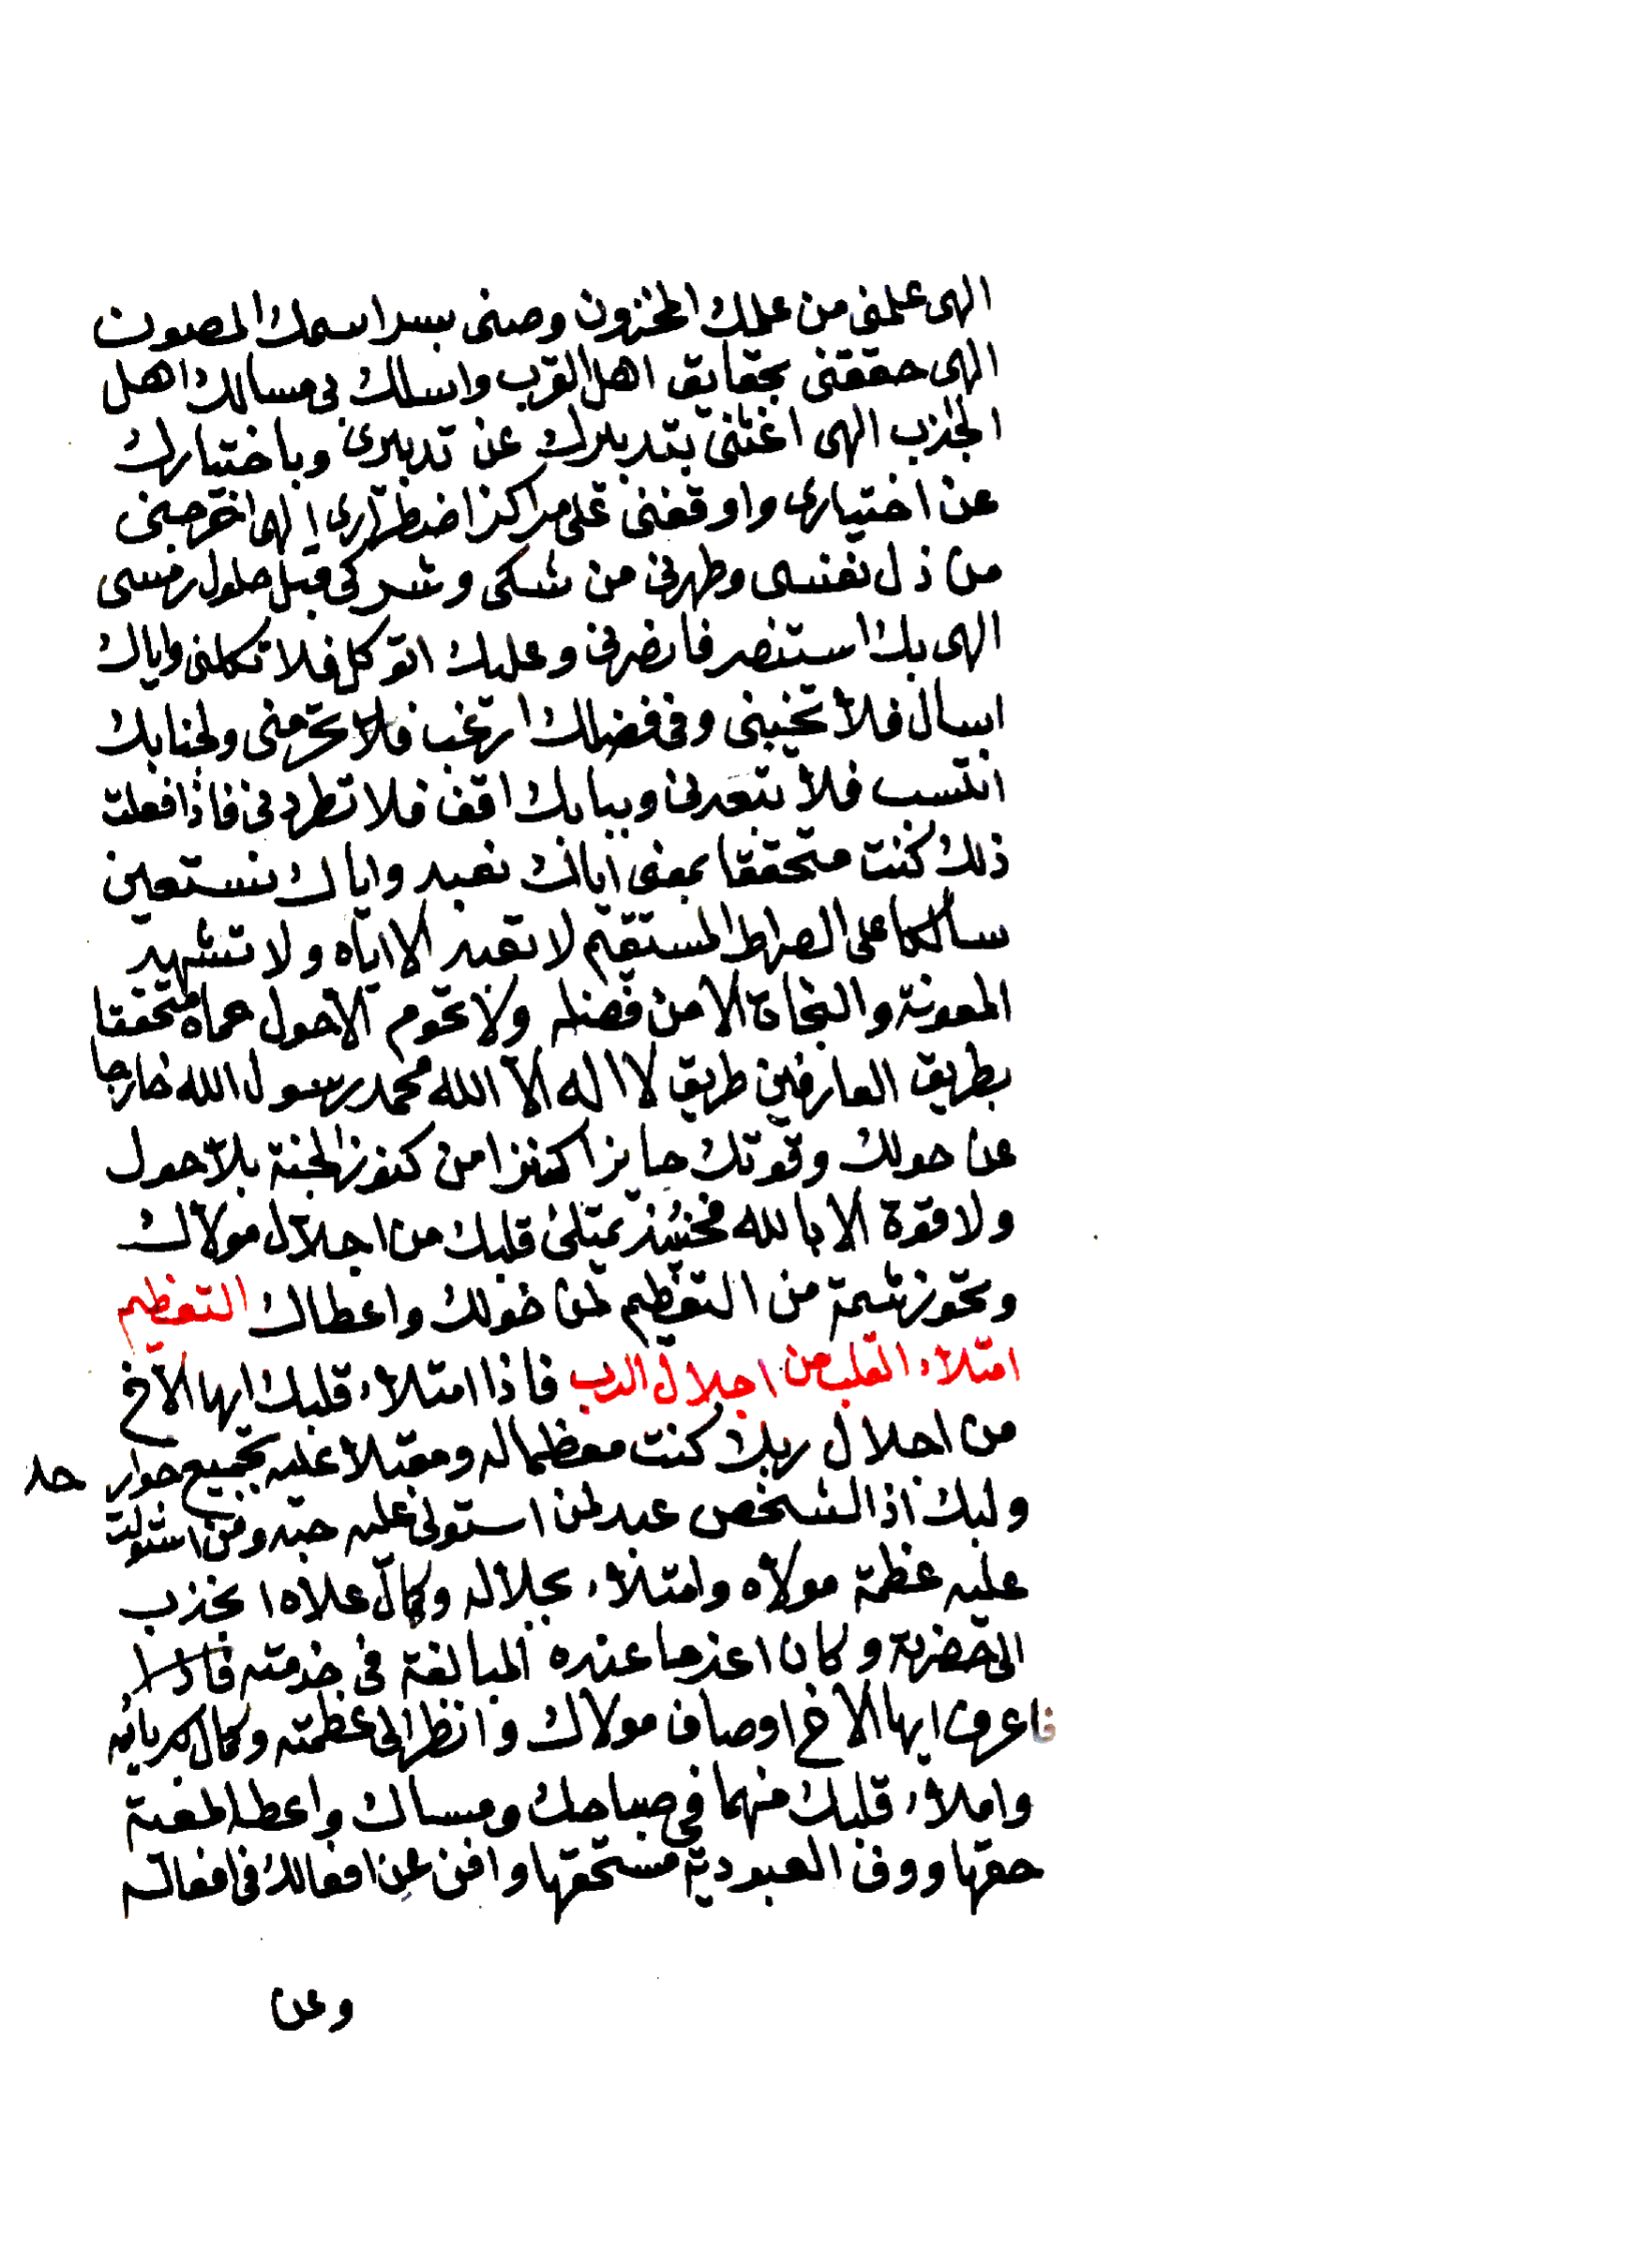 الهى علمنى من علمك المخزون وصنى بسر اسمك المصون
الهى حققنى بحقايق اهل القرب واسلك بى مسالك اهل
الجذب الهى اغننى بتدبيرك عن تدبيرى وباختيارك
عن اختيارى واوقفنى على مراكز اضطرارى الهى اخرجنى
من ذل نفسى وطهرنى من شكى وشركى قبل حلول رمسى
الهى بك استنصر فانصرنى وعليك اتوكل فلا تكلنى واياك
اسال فلا تخيبنى وفى فضلك ارغب فلا تحرمنى ولجنابك
انتسب فلا تبعدنى وببابك اقف فلا تطردنى فاذا فعلت
ذلك كنت متحققا بمعنى اياك نعبد واياك نستعين
سالكا على الصراط المستقيم لا تعبد الا اياه ولا تشهد
المعونة والنجاة الا من فضله ولا تحوم الا حول حماه متحققا
بطريق العارفين طريق لا اله الا الله محمد رسول الله خارجا
عن حولك وقوتك حايزا كنزا من كنوز الجنة بلا حول
ولا قوة الا بالله فحينئذ يمتلئ قلبك من اجلال مولاك
وتحوز شمة من التعظيم لمن خولك واعطاك التعظيم
امتلاء القلب من اجلال الرب فاذا امتلاء قلبك ايها الاخ
من اجلال ربك كنت معظما له ومقبلا عليه بجميع جوار حك
ولبك اذ الشخص عبد لمن استولى عليه حبه ومن استولت
عليه عظمة مولاه وامتلاء بجلاله وكمال علاه انجذب
الى حضرته وكان اعز ما عنده المبالغة فى خدمته فاذا
فاعرف ايها الاخ اوصاف مولاك وانظر الى عظمته وكمال كبريائه
واملاء قلبك منهما فى صباحك ومساك واعط المعية
حقها ووف العبودية مستحقها وافن عن افعالك فى افعاله
وعن